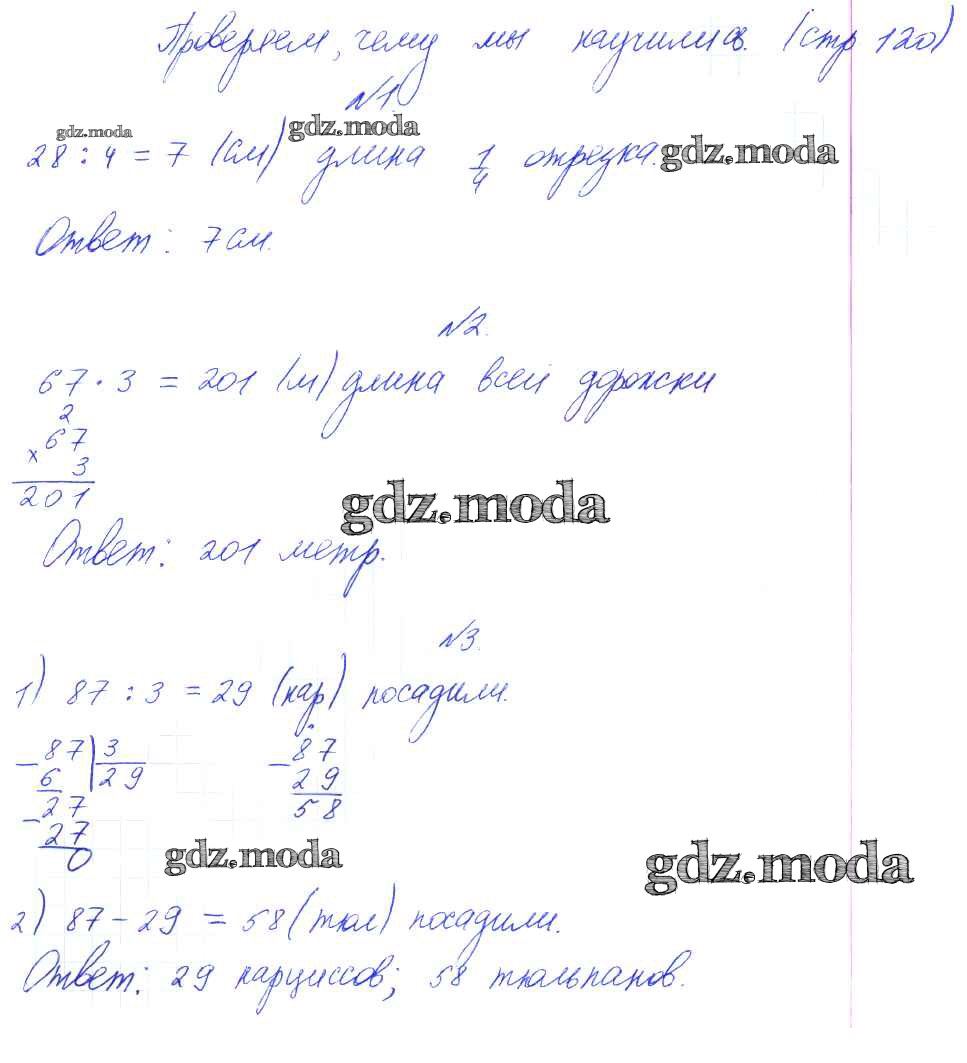 Проверяем, чему мы научились. (стр 120)
№1
gdz.moda gdz.moda
28 : 4 = 7 (см) длина 1/4 отрезка. gdz.moda
Ответ: 7 см.
№2.
67 · 3 = 201 (м) длина всей дорожки
2
× 67
3
201
gdz.moda
Ответ: 201 метр.
№3.
1) 87 : 3 = 29 (нар) посадили.
− 87 | 3 − 87
6 29 29
− 27 58
27
0
gdz.moda gdz.moda
2) 87 − 29 = 58 (тюл) посадили.
Ответ: 29 нарциссов; 58 тюльпанов.